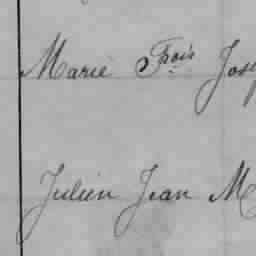 Marie Frois Jose
Julien Jean M